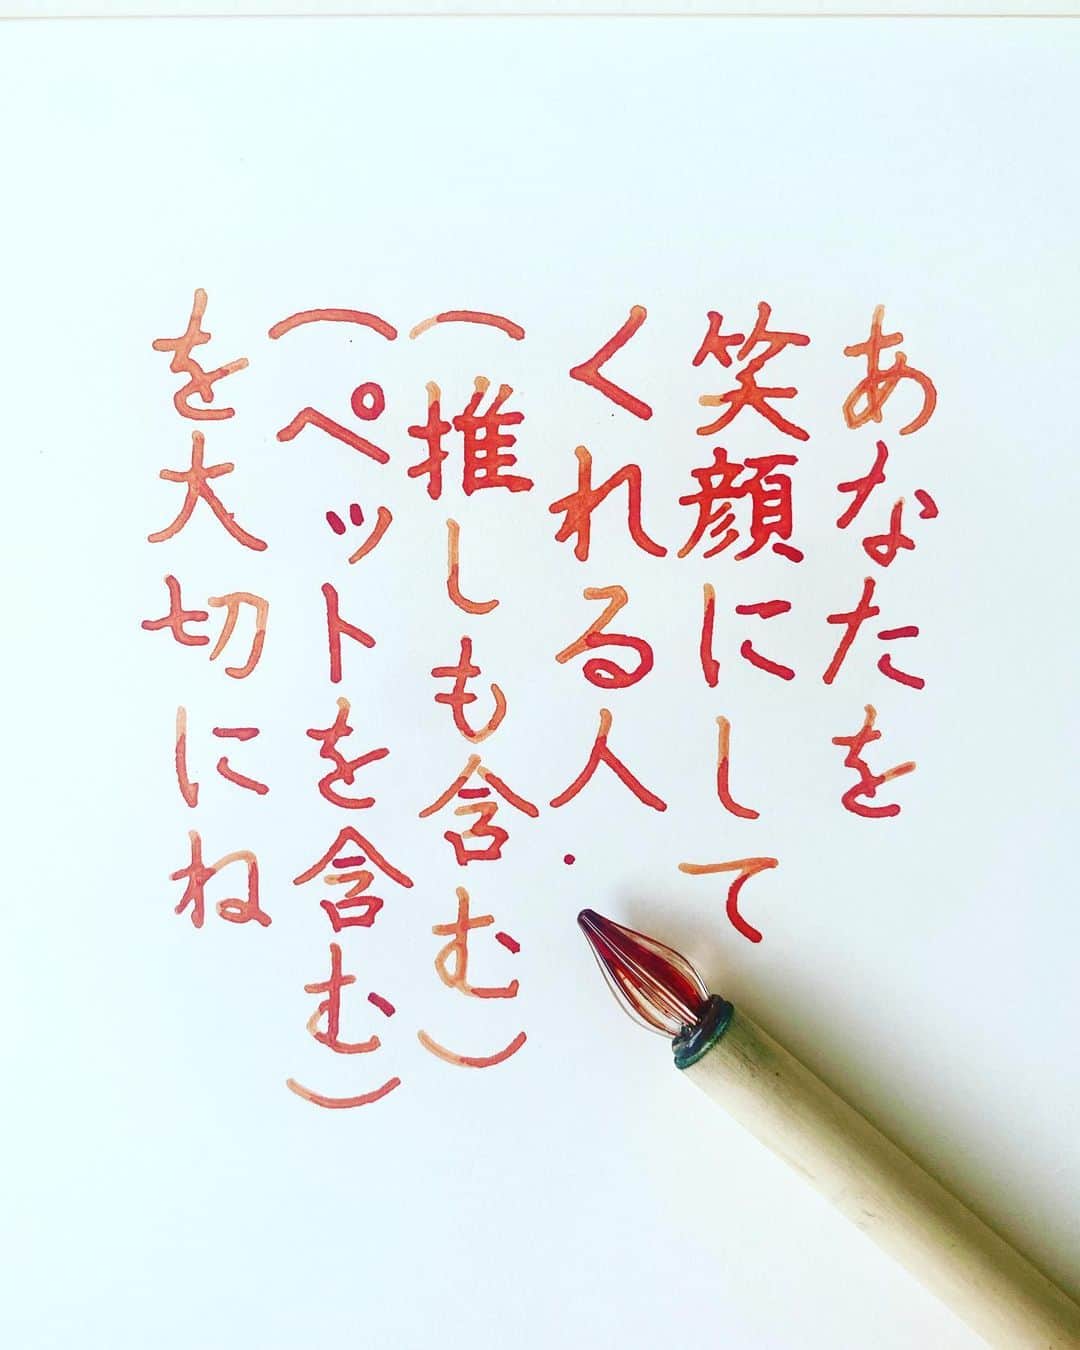 あなたを
笑顔にして
くれる人
（推しも含む）
（ペットを含む）
を大切にね